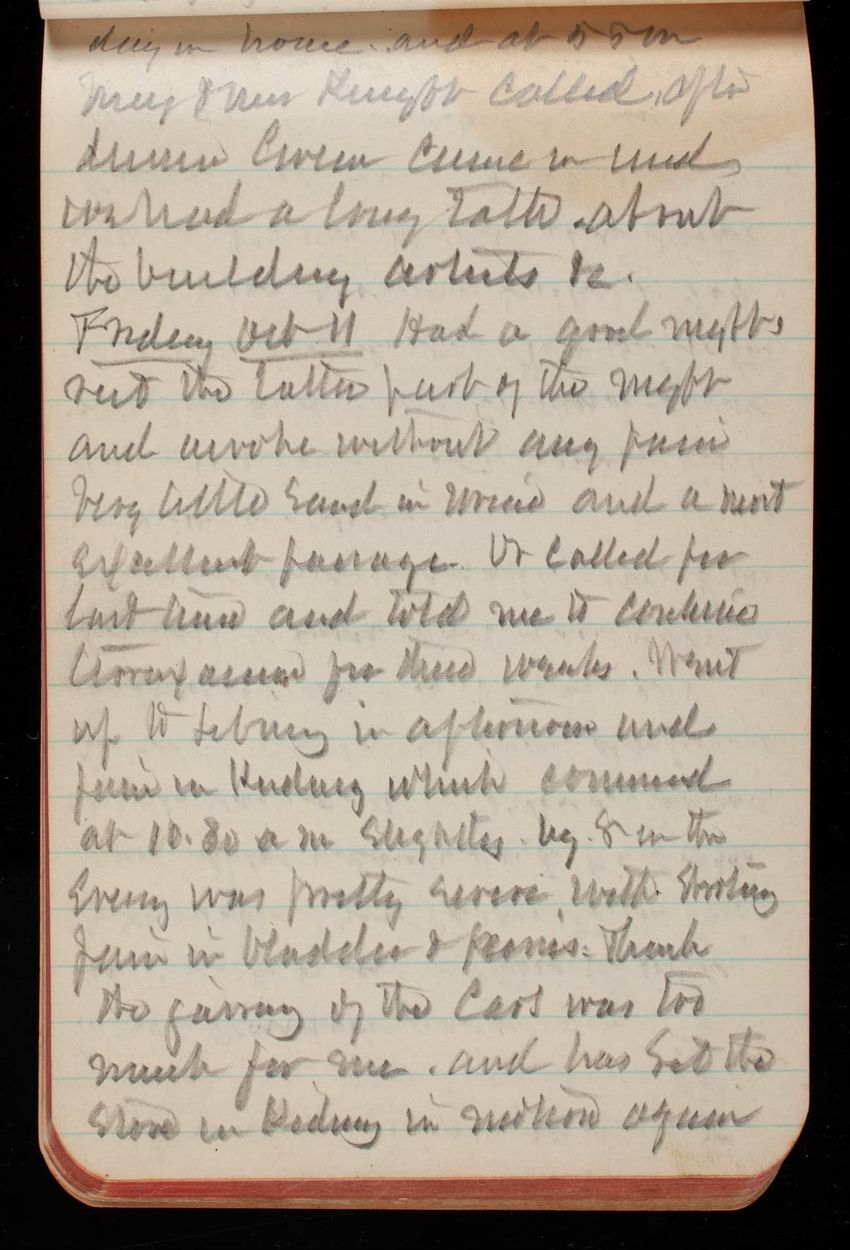 day in house. and at 5 P m
Mary & Mrs Knight called, after
dinner Gwen came in and
we had a long talk. about
the building artists &c.
Friday Oct 11 Had a good nights
rest the latter part of the night
and awoke without any pain
Very little Sand in urine and a most
excellent passage. Dr Called for
last time and told me to continue
for three weeks. Went
up to in afternoon and
pain in Kidney which commenced
at 10.30 a m Slightly. by 8 in the
Evening was pretty severe with Shooting
pain in bladder & penis. Think
the jarring of the Cars was too
much for me. and has Set the
Stone in Kidney in motion again